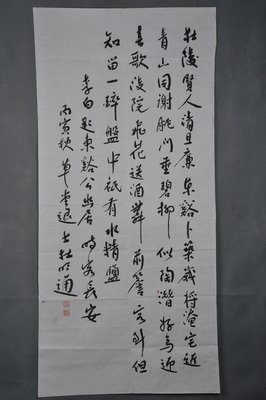 杜陵賢人清且廉東谿卜築歲將淹宅近
青山同謝朓門垂碧柳似陶潛好鳥迎
春歌後院飛花送酒舞前簷客到但
知留一醉盤中祇有水精鹽
李白題東谿公幽居時客長安
丙寅秋草堂退士杜明通